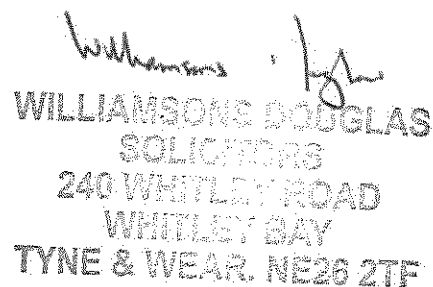 Williamsons
WILLIAMSONS DOUGLAS
SOLICITORS
240 WHITLEY ROAD
WHITLEY BAY
TYNE & WEAR. NE26 2TF